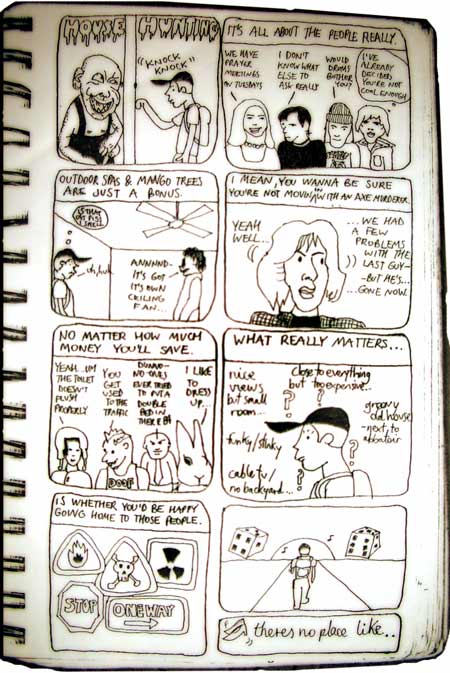 HOUSE HUNTING
"KNOCK
KNOCK"
IT'S ALL ABOUT THE PEOPLE REALLY.
WE HAVE
PRAYER
MEETINGS
ON TUESDAYS
I DON'T
KNOW WHAT
ELSE TO
ASK REALLY
WOULD
DRUMS
BOTHER
YOU?
I'VE
ALREADY
DECIDED
YOU'RE NOT
COOL ENOUGH
OUTDOOR SPAS & MANGO TREES
ARE JUST A BONUS.
IS THAT
CAT PISS
I SMELL
uh, huh
ANNNND-
IT'S GOT
IT'S OWN
CEILING
FAN...
I MEAN, YOU WANNA BE SURE
YOU'RE NOT MOVING IN WITH AN AXE MURDERER.
YEAH
WELL...
...WE HAD
A FEW
PROBLEMS
WITH THE
LAST GUY-
-BUT HE'S...
...GONE NOW.
NO MATTER HOW MUCH
MONEY YOU'LL SAVE.
YEAH..UM
THE TOILET
DOESN'T
FLUSH
PROPERLY
YOU
GET
USED
TO THE
TRAFFIC
DUNNO-
NO ONE'S
EVER TRIED
TO PUT A
DOUBLE
BED IN
THERE
I LIKE
TO
DRESS
UP..
DOOF
WHAT REALLY MATTERS...
nice
views
but small
room...
close to everything
but too expensive..
groovy
old house
-next to
abbatoir
funky/stinky
cable tv/
no backyard...
? ? ? ? ?
IS WHETHER YOU'D BE HAPPY
GOING HOME TO THOSE PEOPLE.
STOP
ONE WAY
theres no place like..